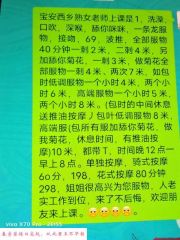 宝安西乡熟女老师上课是1、洗澡、
口吹、深喉、舔你咪咪，一条龙服
物，接吻、69、波推、全部服物
40分钟一刺2米，二刺4米，另
加舔你菊花、一刺3米，做菊花全
部服物一刺4米、两次7米，如包
时低调服物一个小时4米、两个小
时6米，高端服物一个小时5米、
两个小时8米。(包时的中间休息
送推油按摩丿包叶低调服物8米、
高端服(包所有服物，舔你菊花、做
我菊花，休息时间，有推油按
摩)10米，都带T，时间晚12点一
早上8点。单独按摩、骑式按摩
6o分、198，花式按摩80分钟
298，姐姐很高兴为您服物，人老
实工作到位，来了不后悔、欢迎朋
友来上课。
vivo X70 Pro